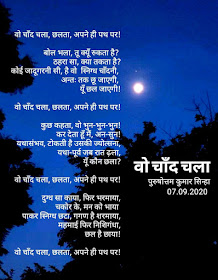 वो चाँद चला, छलता, अपने ही पथ पर!
बोल भला, तू क्यूँ रुकता है?
ठहरा सा, क्या तकता है?
कोई जादूगरनी सी, है वो स्निग्ध चाँदनी,
अन्ततः तक छू जाएगी,
यूँ छल जाएगी!
वो चाँद चला, छलता, अपने ही पथ पर!
कुछ कहता, वो भुन-भुन-भुन!
कर देता हूँ मैं, अन-सुन!
यथासंभव, टोकती है उसकी ज्योत्सना,
यथा-पूर्व जब रात ढ़ला,
यूँ कौन छला?
वो चाँद चला, छलता, अपने ही पथ पर!
दुग्ध सा काया, फिर भरमाया,
चकोर के, मन को भाया
पाकर स्निग्ध छटा, गगण है शरमाया,
महमाई फिर निशिगंधा,
छल है छाया!
वो चाँद चला, छलता, अपने ही पथ पर!
वो चाँद चला
पुरुषोत्तम कुमार सिन्हा
07.09.2020